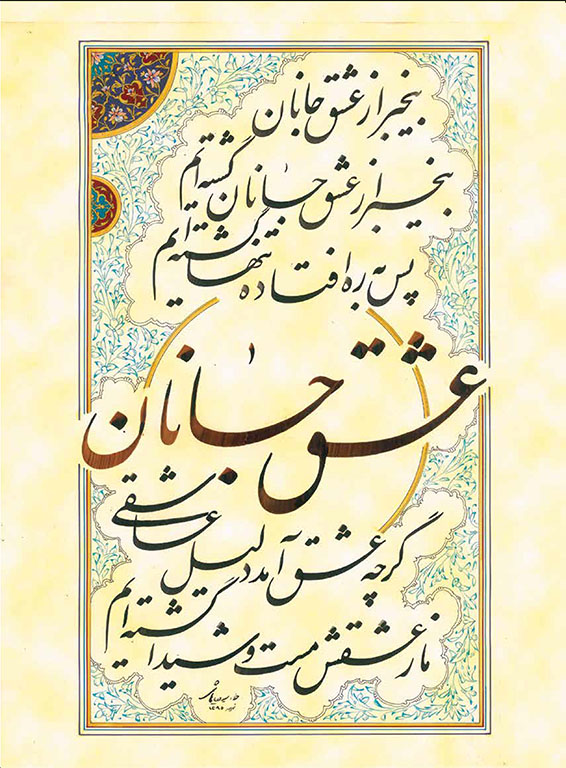 بیخبر از عشق جانان
بیخبر از عشق جانان گشته ایم
پس به ره افتاده تنها گشته ایم
عشق جانان
گرچه عشق آمد دلیل عاشقی
ما ز عشقش مست و شیدا گشته ایم